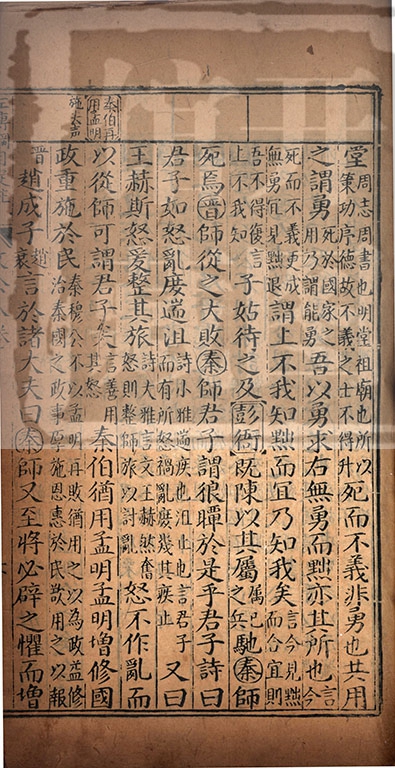 堂周志周書也明堂祖廟也所以策功序德故不義之士不得升死而不義非勇也共用
之謂勇死於國家之用乃謂能勇吾以勇求右無勇而黜亦其所也言今
死而不義更成無勇冝見黜退謂上不我知黜而冝乃知我矣言今見黜而合冝則
吾不得復言上不我知子姑待之及彭衙旣陳以其屬屬己之兵馳秦師
死焉晉師從之大敗秦師君子謂狼瞫於是乎君子詩曰
君子如怒亂庶遄沮詩小雅遄疾也沮止也言君子而有所怒禍亂庶幾其疾止又曰
王赫斯怒爰整其旅詩大雅言文王赫然奮怒則整師旅以討亂怒不作亂而
秦伯再用孟明
以從師可謂君子矣言善用其怒秦伯猶用孟明孟明增修國
施去声
政重施於民秦穆公不以孟明再敗猶用之以為政益修治秦國之政事厚施恩惠於民欲用之以報
晉趙成子趙衰言於諸大夫曰秦師又至將必辟之懼而增